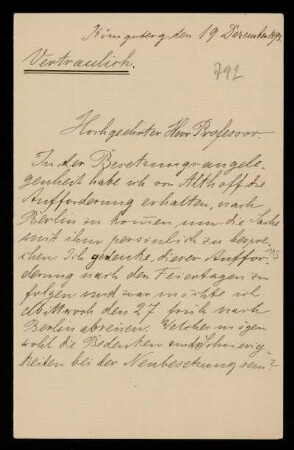 Königsberg den 19 Dezember
Vertraulich.
792
Hochgeehrter Herr Professor.
In der Besetzungsangele-
genheit habe ich von Althoff die
Aufforderung erhalten, nach
Berlin zu kommen, um die Sache
mit ihm persönlich zu bespre-
chen. Ich gedenke, dieser Auffor-
derung nach den Feiertagen zu
folgen und zwar möchte ich
Mittwoch den 27 früh nach
Berlin abreisen. Welcher mögen
wohl die Bedenken und Schwierig-
keiten bei der Neubesetzung sein?